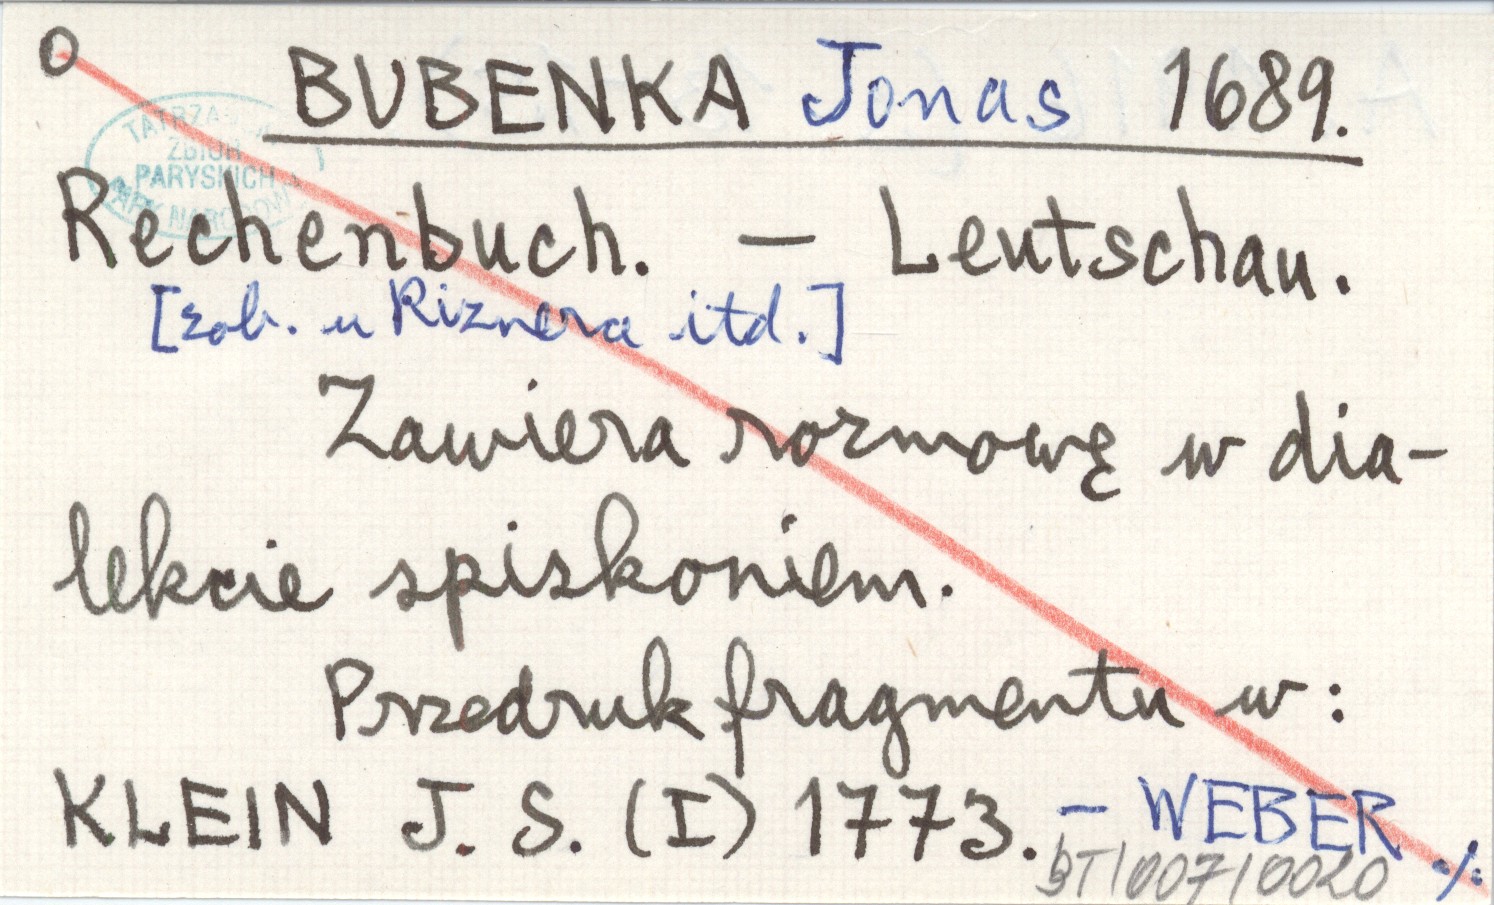 O
BUBENKA Jonas 1689.
TATRZA
ZBIÓR
PARYSKICH
PARK NARODOW
Rechenbuch. — Leutschau.
[zob. u Riznera itd.]
Zawiera rozmowę w dia-
lekcie spiskoniem.
Przedruk fragmentu w:
KLEIN J. S. (I) 1773. — WEBER
BT/007/0020 ·/.